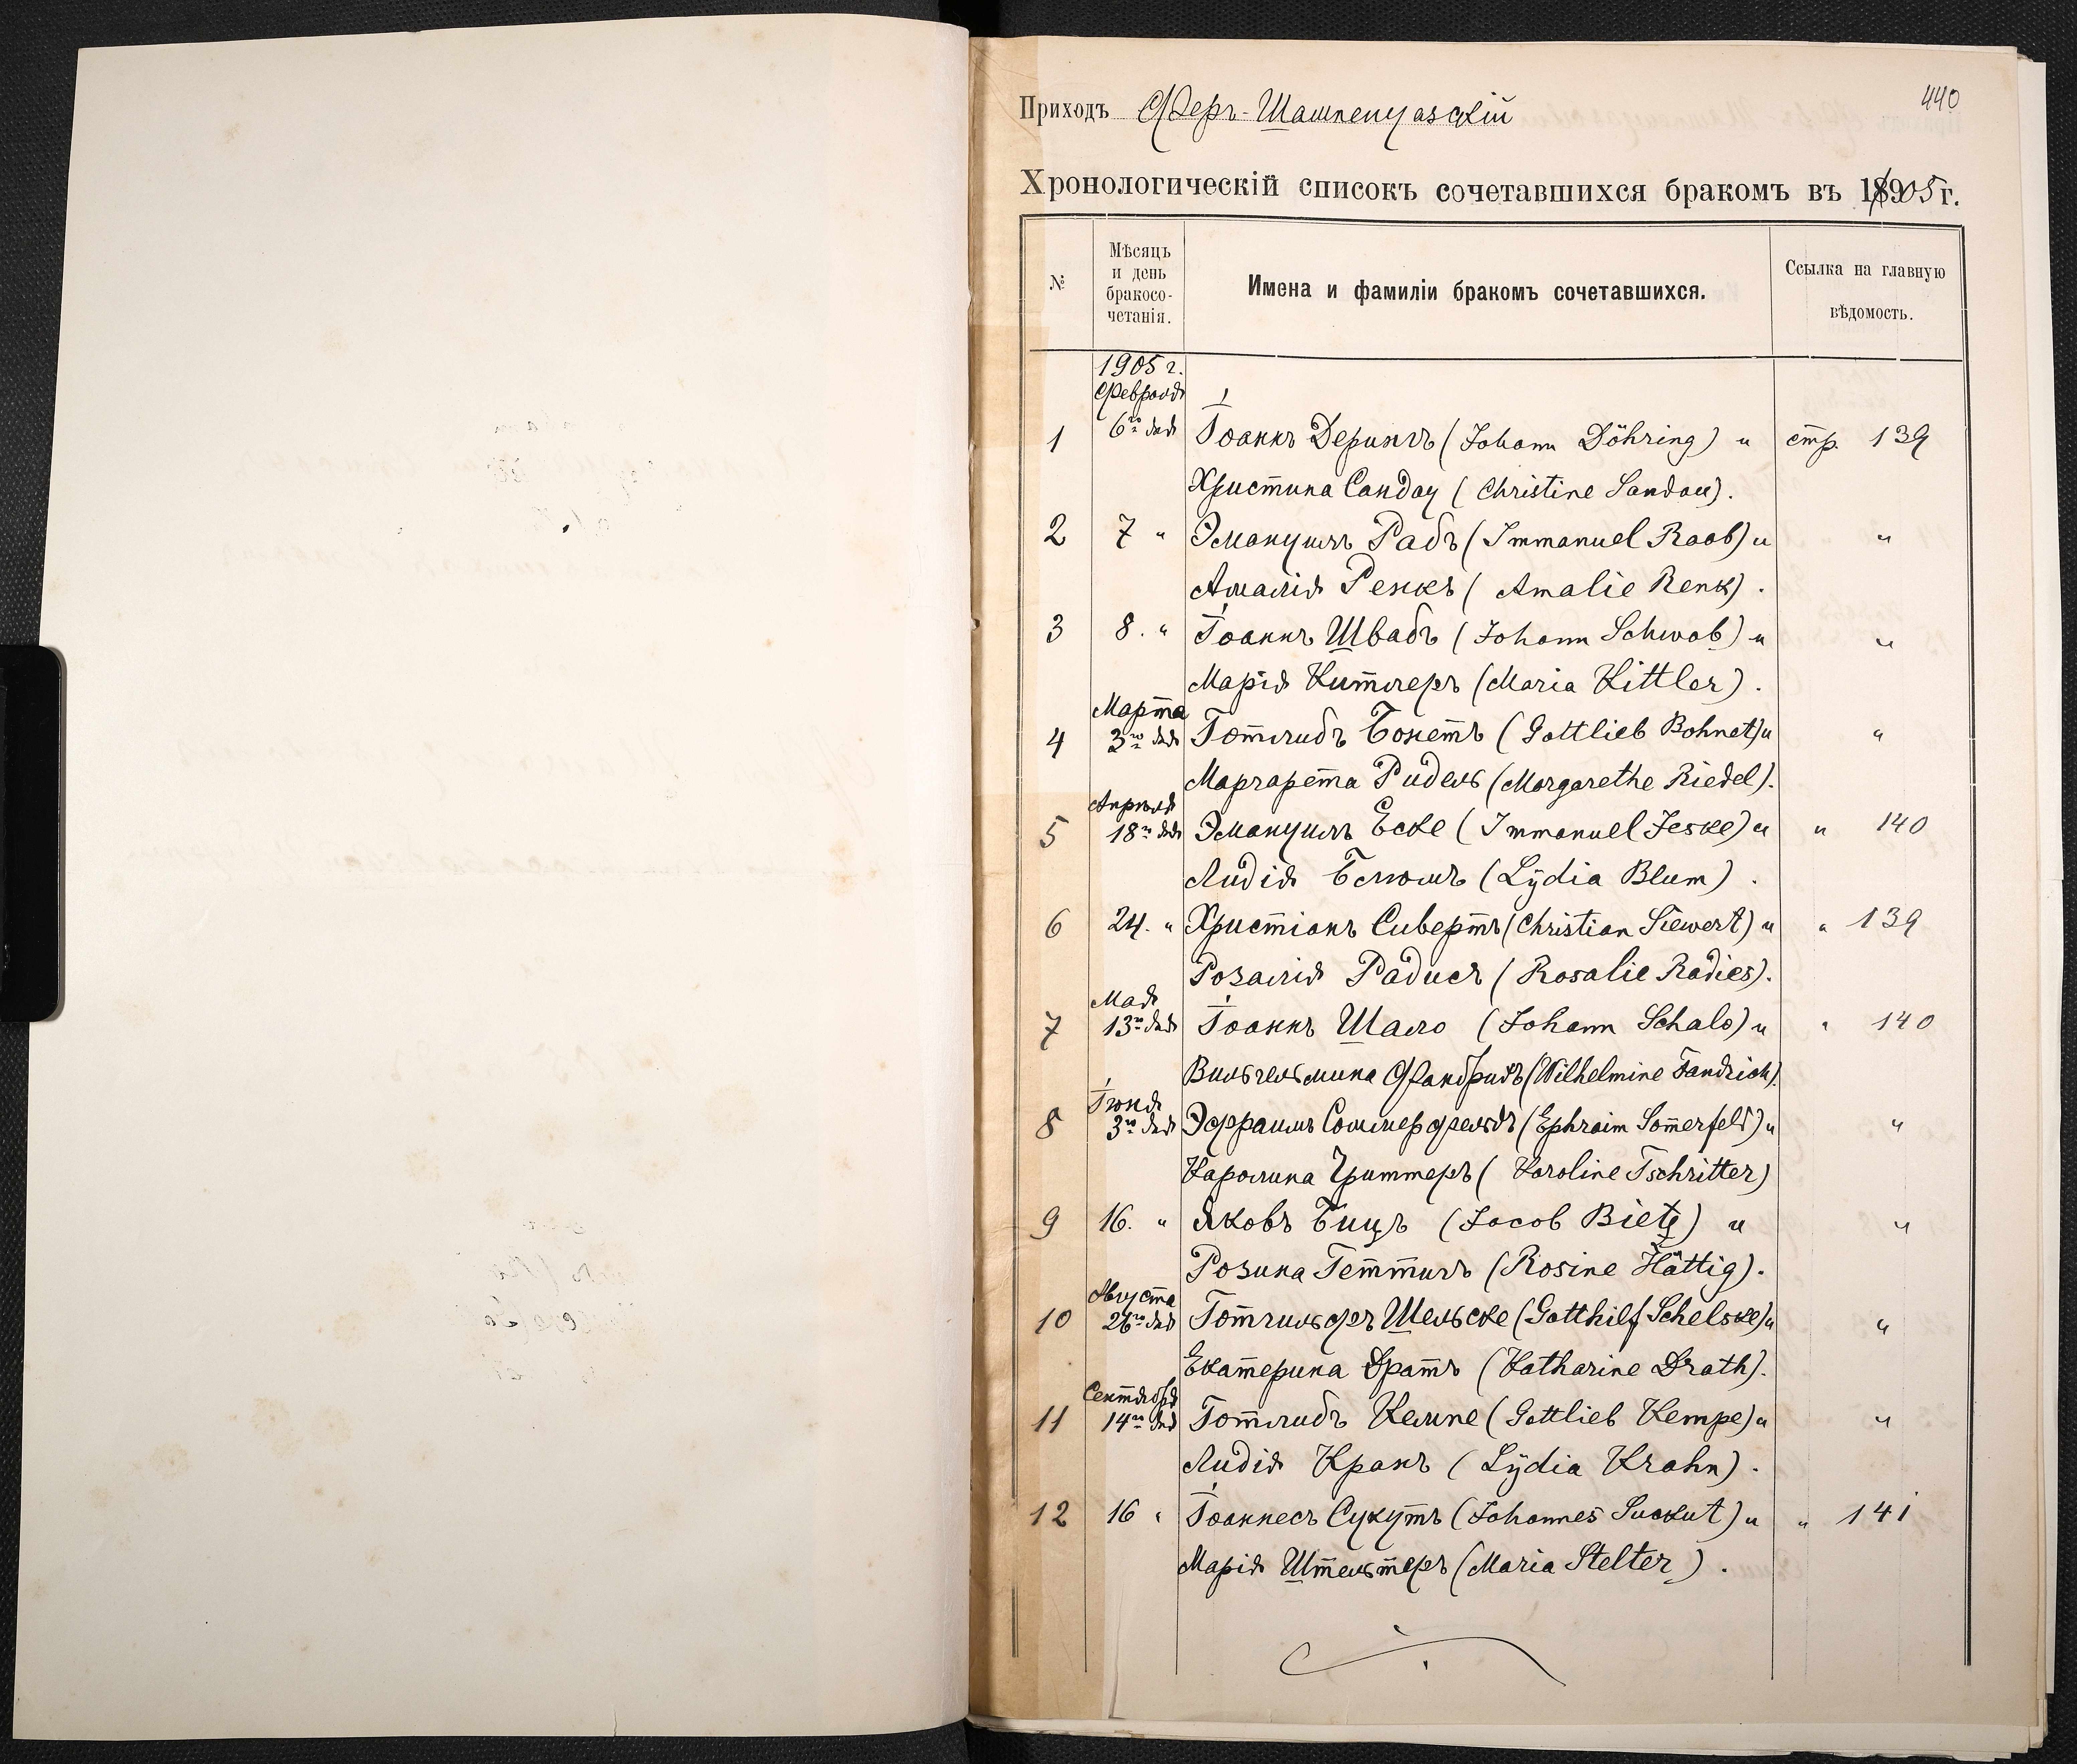 440
Приходъ Феръ-Шампенуазскій
Хронологическій списокъ сочетавшихся бракомъ въ 1905 г.
№
Мѣсяцъ
и день
бракосо-
четанія.
Имена и фамиліи бракомъ сочетавшихся.
Ссылка на главную
вѣдомость.
1905 г.
Февраля
1 6го дня Іоаннъ Дерингъ (Johann Döhring) и стр. 139
Христина Сандау (Christine Sandau).
2 7 " Эмануилъ Рабъ (Immanuel Raab) и "
Амалія Ренкъ (Amalie Renk).
3 8. " Іоаннъ Швабъ (Johann Schwab) и "
Марія Китлеръ (Maria Kittler).
Марта
4 3го дня Готлибъ Бонетъ (Gottlieb Bohnet) и "
Маргарета Ридель (Margarethe Riedel).
Апрѣля
5 18го дня Эмануилъ Еске (Immanuel Jeske) и " 140
Лидія Блюмъ (Lÿdia Blum).
6 24. " Христіанъ Сивертъ (Christian Siewert) и " 139
Розалія Радисъ (Rosalie Radies).
Мая
7 13го дня Іоаннъ Шало (Johann Schalo) и " 140
Вильгельмина Фандрихъ (Wilhelmine Fandrich).
Іюня
8 3го дня Эфраимъ Соммерфельдъ (Ephraim Som̅erfeld) и "
Каролина Чриттеръ (Karoline Tschritter)
9 16. " Яковъ Бицъ (Jacob Bietz) и "
Розина Геттигъ (Rosine Hättig).
Августа
10 26го дня Готгильфъ Шельске (Gotthilf Schelske) и "
Екатерина Дратъ (Katharine Drath).
Сентября
11 14го дня Готлибъ Кемпе (Gottlieb Kempe) и "
Лидія Кранъ (Lÿdia Krahn).
12 16 " Іоаннесъ Сукутъ (Johannes Suckut) и " 141
Марія Штельтеръ (Maria Stelter).